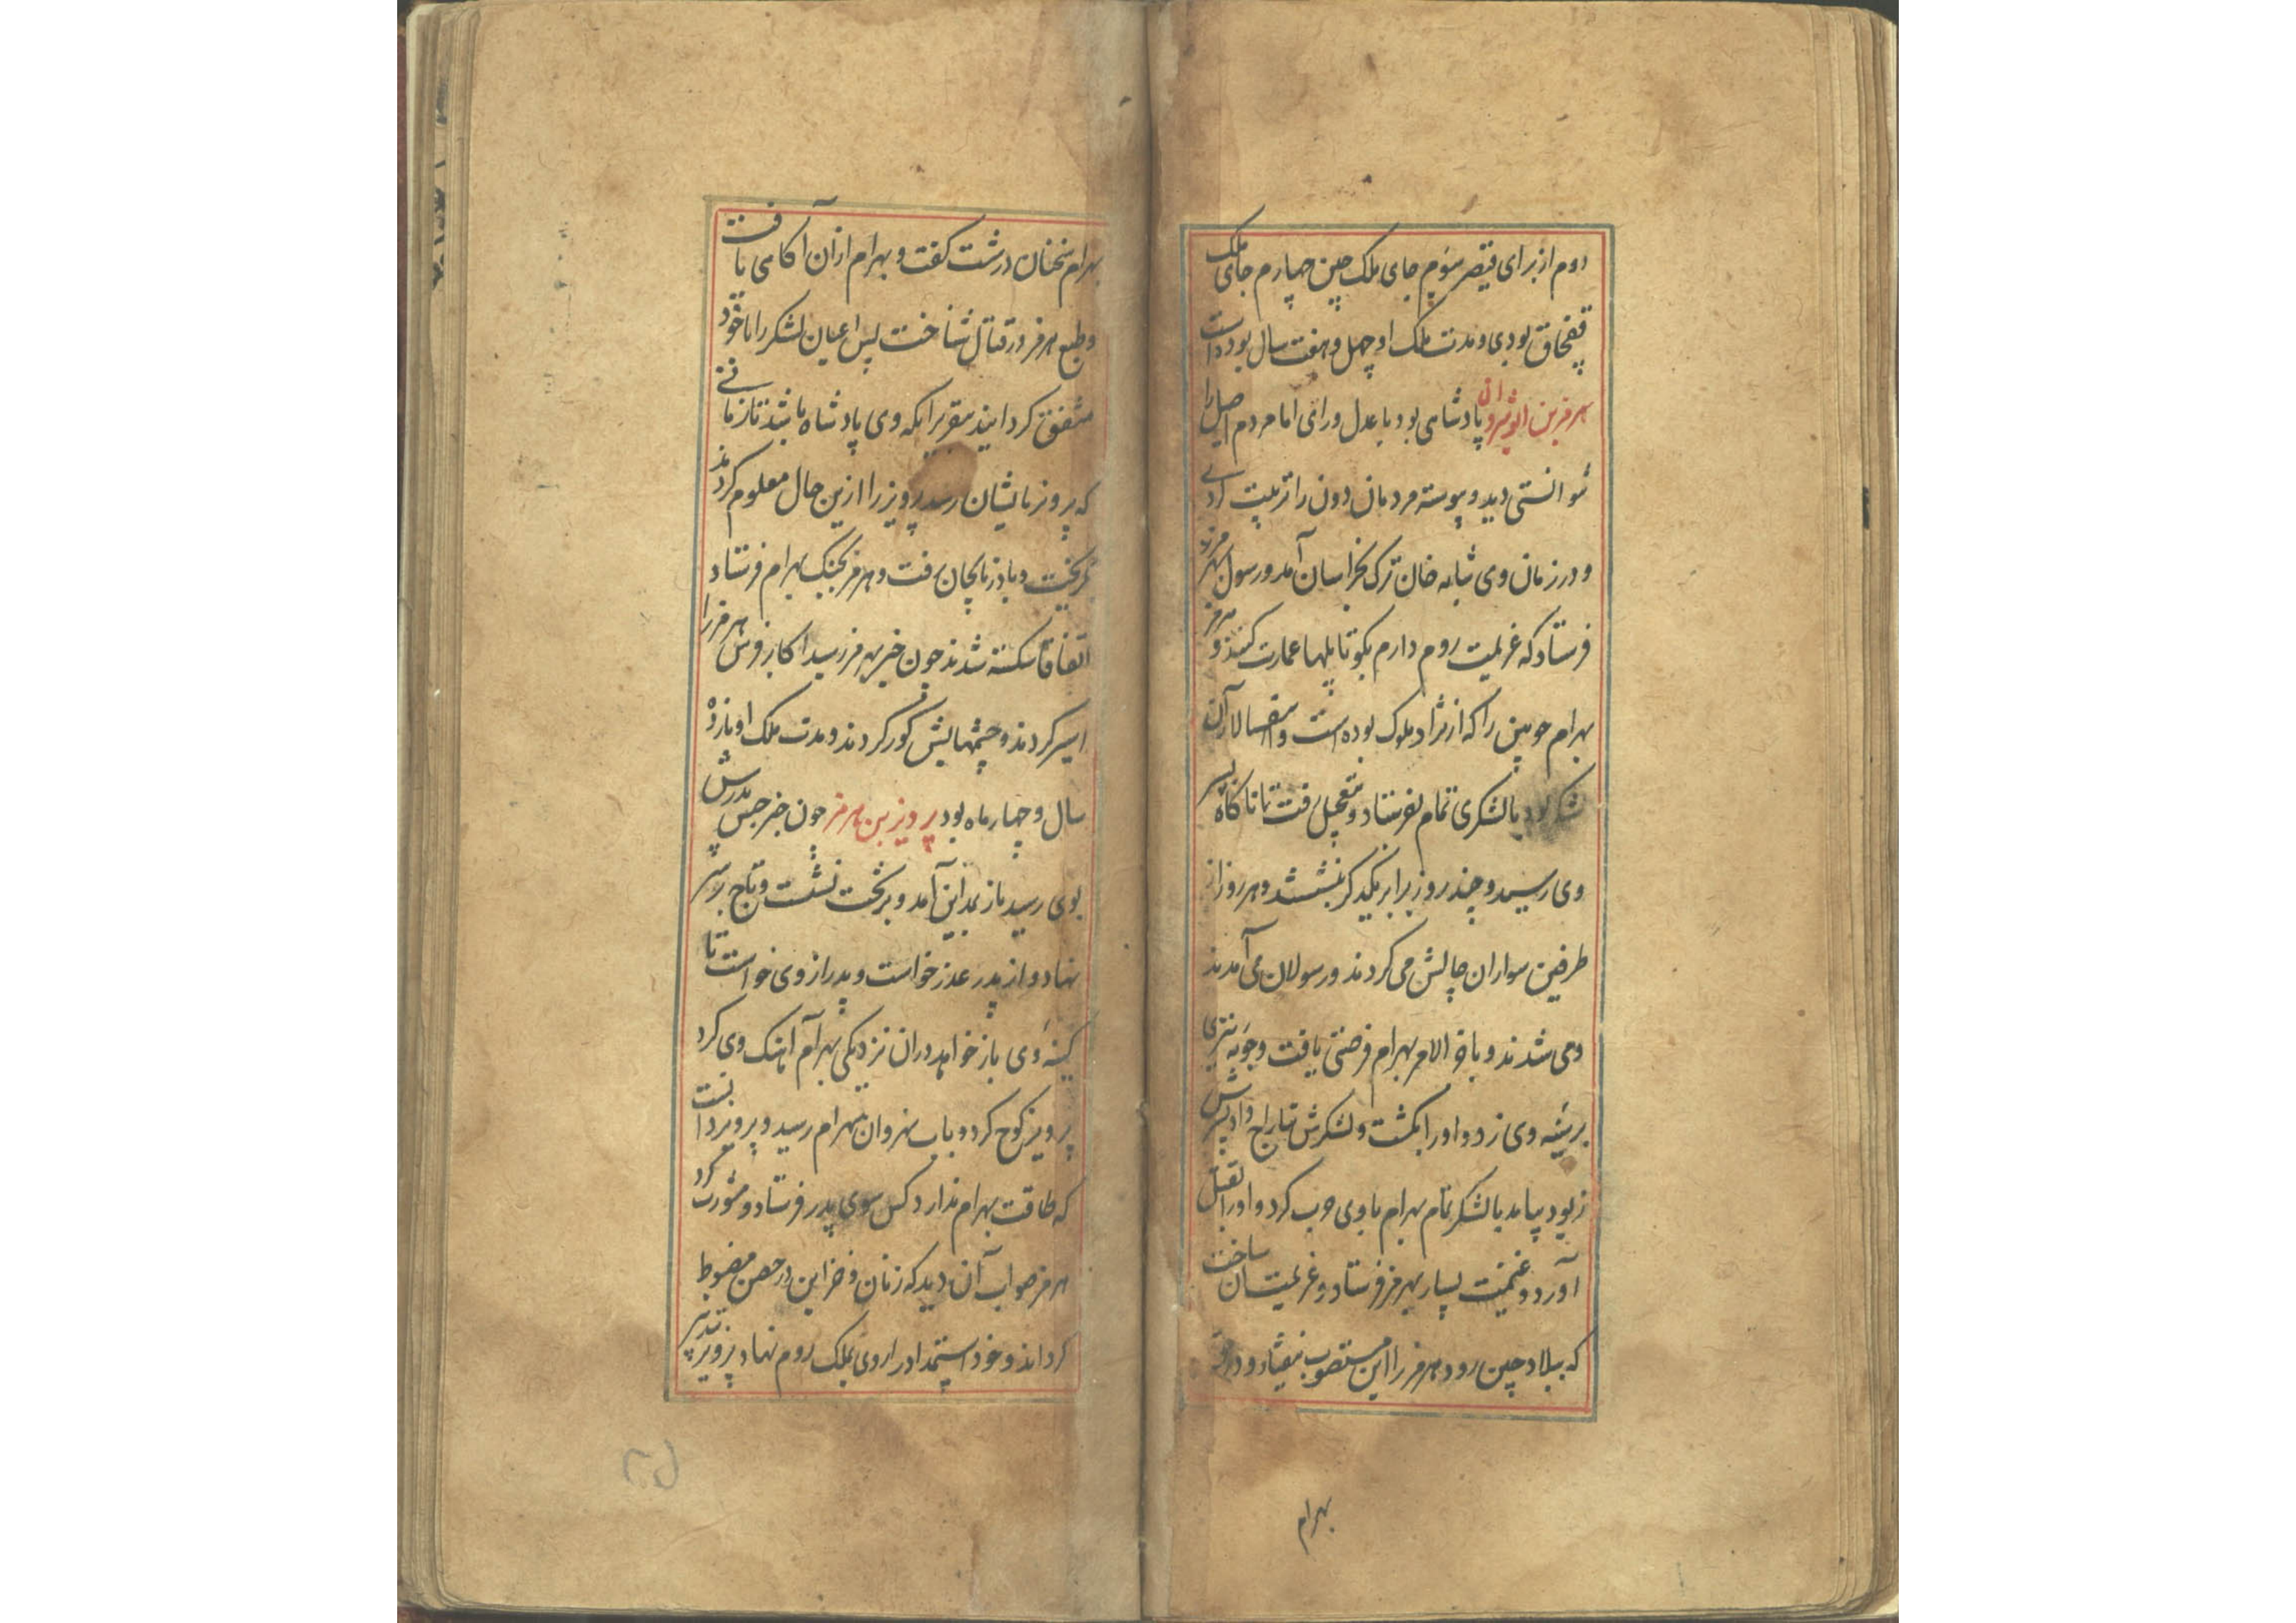 دوم از برای قیصر سوم جای ملک چین چهارم جای ملک
قفچاق بودی و مدت ملک او چهل و هفت سال بوده است
هرمز بن انوشروان پادشاهی بود با عدل و رای اما مردم اصیل را
نتوانستی دید و پیوسته مردمان دون را تربیت کردی
و در زمان وی شابه خان ترک بخراسان آمد و رسول بهرمز
فرستاد که عزیمت روم دارم بکو تا پلها عمارت کنند و هرمز
بهرام چوبین را که از نژاد ملوک بوده است و اسفهسالار آن
لشکر بود با لشکری تمام بفرستاد و بتعجیل رفت تا ناکاه بسر
وی رسید و چند روز برابر یکدیکر بنشستند و هر روز از
طرفین سواران چالش می کردند و رسولان می آمدند
و می شدند و باخر الامر بهرام فرصتی یافت و چوبه تیری
بر سینه وی زد و او را بکشت و لشکرش تاراج داد پسرش
بیامد با لشکر تمام بهرام با وی حرب کرد و او را بقتل
آورد و غنیمت بسیار بهرمز فرستاد و عزیمت آن ساخت
که ببلاد چین رود هرمز را این مستصوب نیفتاد و در حق
بهرام
بهرام سخنان درشت کفت و بهرام از آن آکاهی یافت
و طبع هرمز در قتال شناخت پس اعیان لشکر را با خود
متفق کردانید بتقریر آنکه وی پادشاه باشد تا زمانی
که پرویز بایشان رسد پرویز را ازین حال معلوم کردند
بکریخت و باذربایجان رفت و هرمز بجنک بهرام فرستاد
اتفاقا شکسته شدند چون خبر بهرمز رسید اکابر فرس هرمز را
اسیر کردند و چشمهایش کور کردند و مدت ملک او یازده
سال و چهار ماه بود پرویز بن هرمز چون خبر حبس پدرش
بوی رسید باز بمداین آمد و بر تخت نشست و تاج بر سر
نهاد و از پدر عذر خواست و پدر از وی خواست تا
کینه وی باز خواهد در آن نزدیکی بهرام آهنک وی کرد
پرویز کوچ کرد و باب نهروان ببهرام رسید و پرویز دانست
که طاقت بهرام ندارد کس سوی پدر فرستاد و مشورت کرد
هرمز صواب آن دید که زنان و خزاین در حصن مضبوط
کرداند و خود استمداد را روی بملک روم نهاد پرویز تدبیر